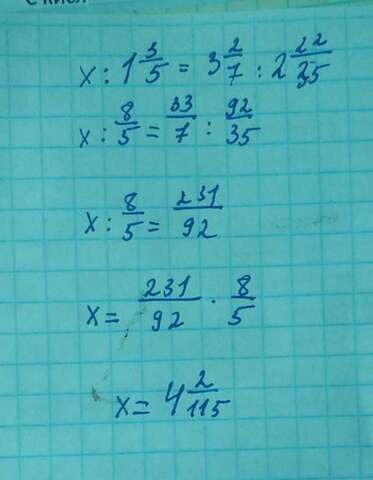 x : 1 3/5 = 3 2/7 : 2 22/35
x : 8/5 = 33/7 : 92/35
x : 8/5 = 231/92
x = 231/92 · 8/5
x = 4 2/115